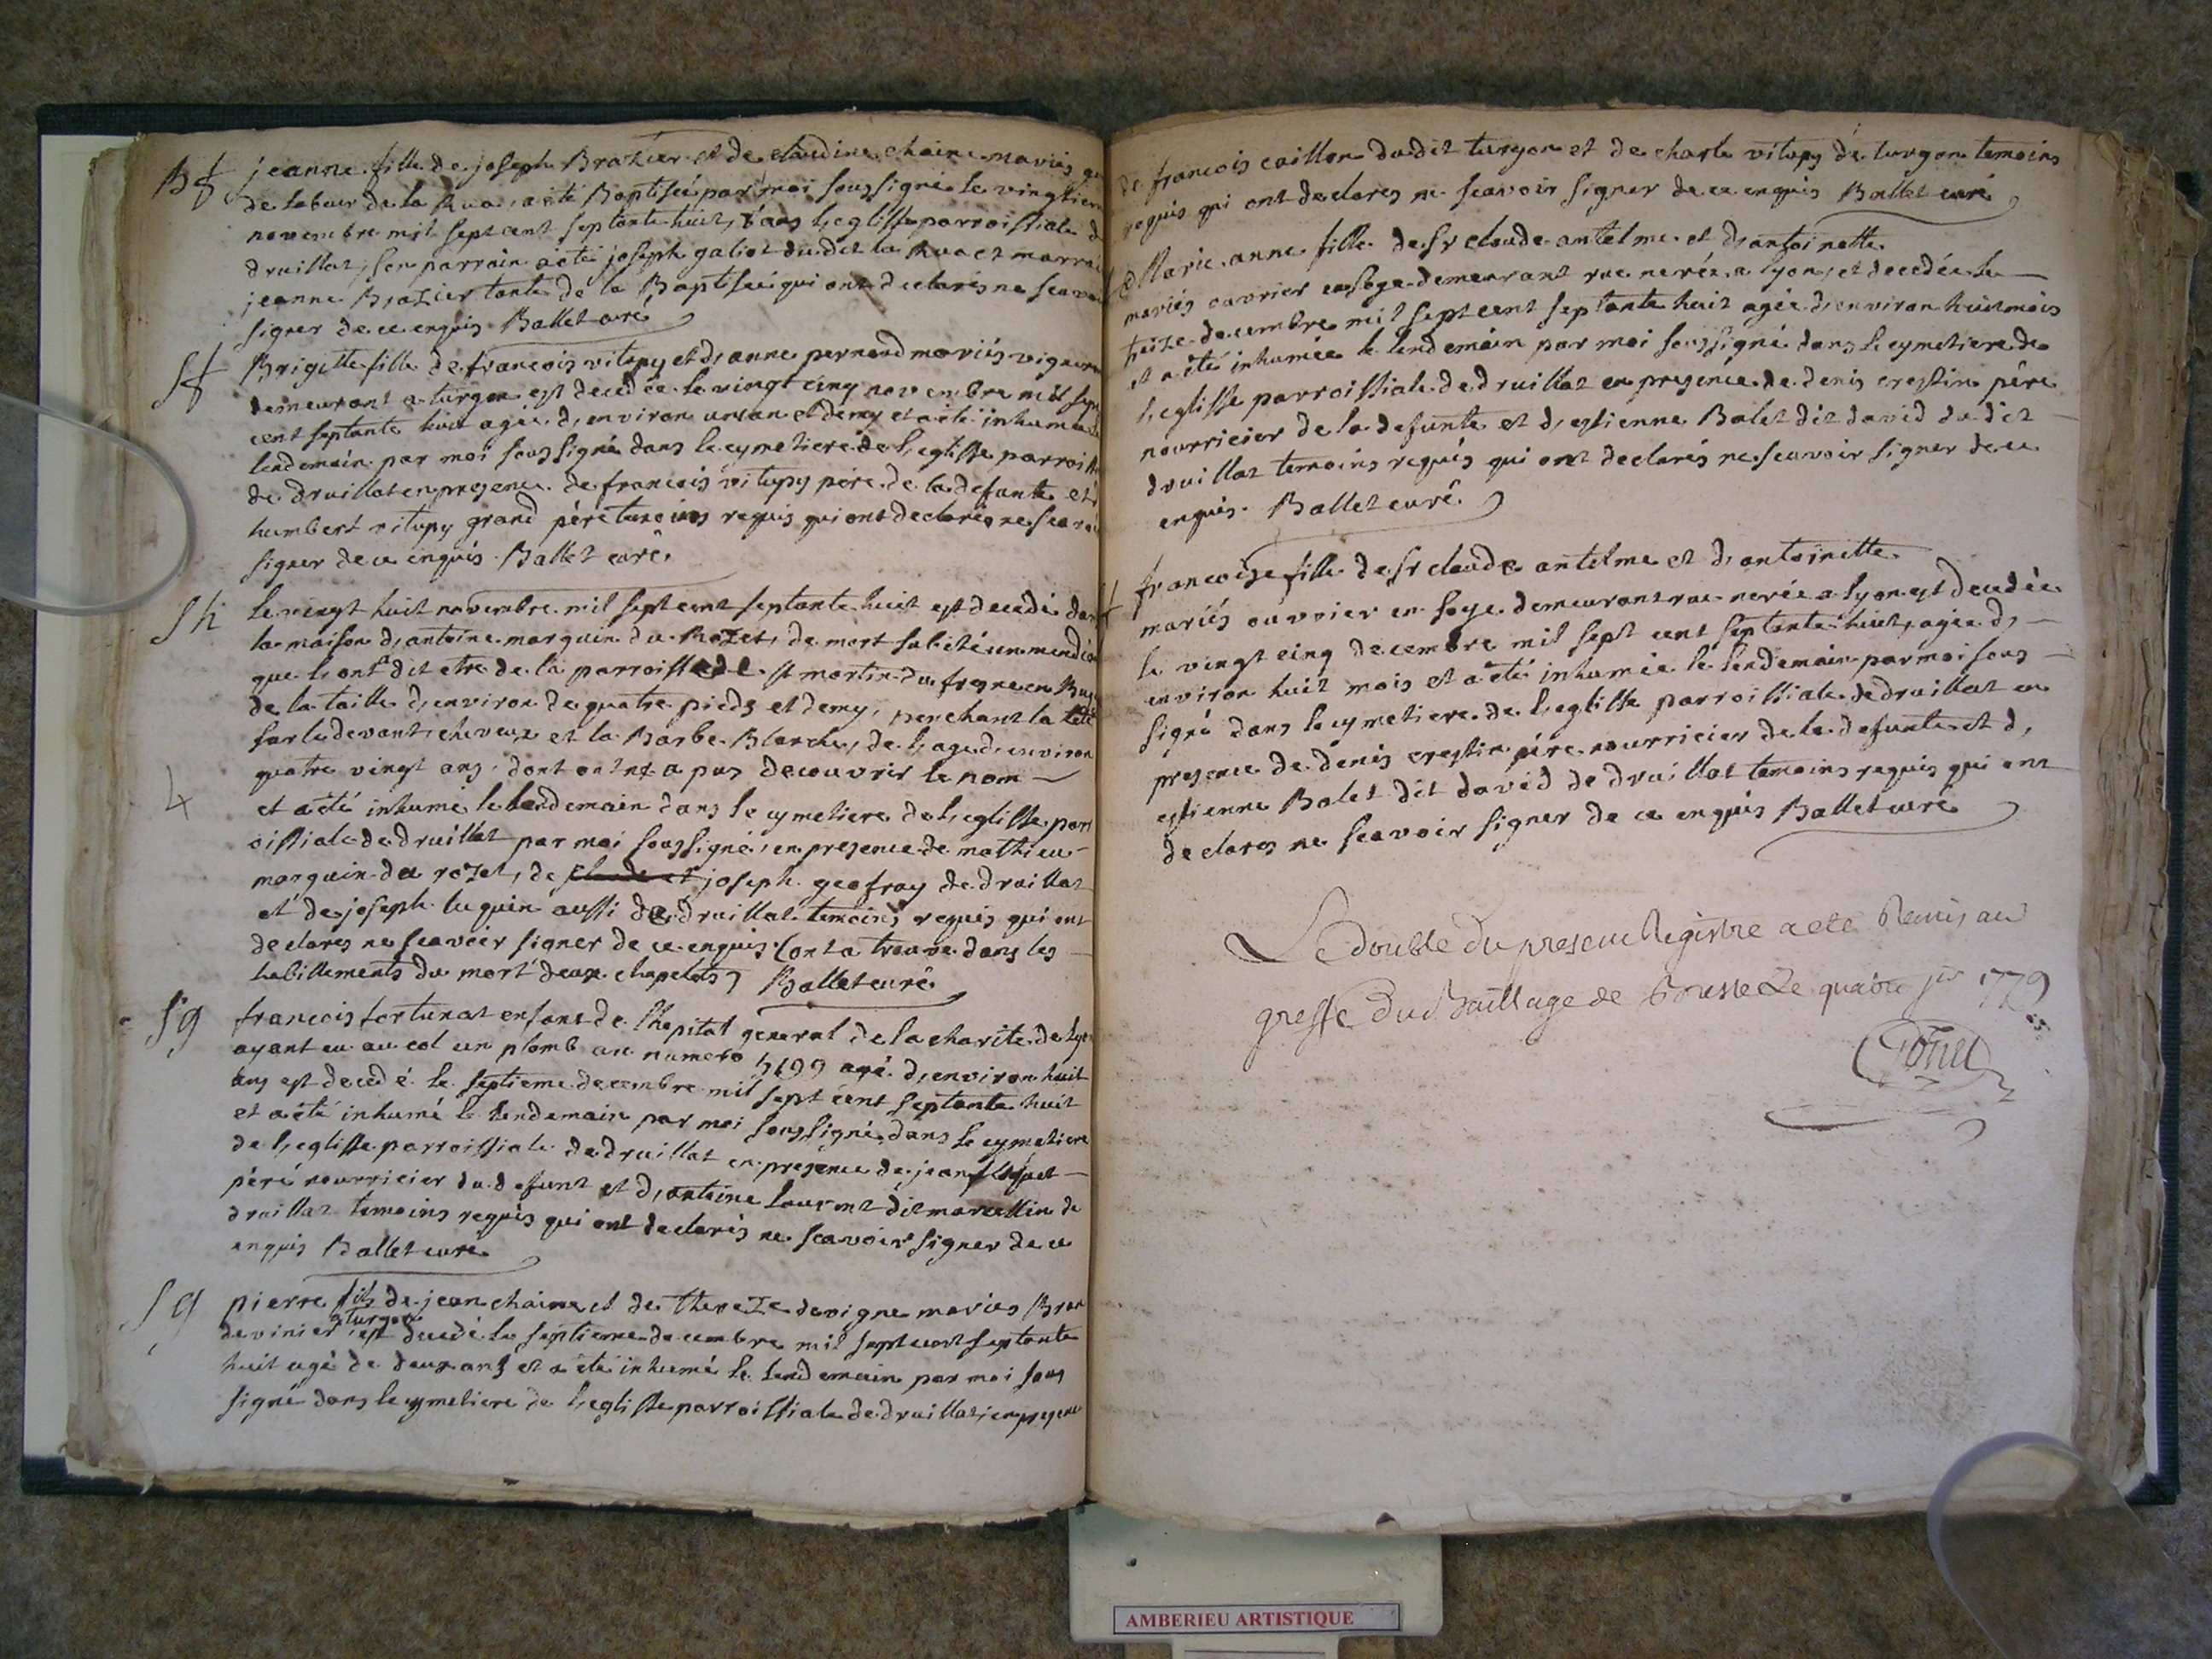 Bf jeanne fille de joseph Brazier et de claudine chaine mariés
de labeur de la Rua, a été Baptisée par moi soussigné le vingtiem
novembre mil sept cent septante huit, dans l,eglisse parroissiale d
druillat, son parrain a été joseph galiot dudit la Rua et marrai
jeanne Brazier tante de la Baptisée qui ont declarés ne scavo
signer de ce enquis Ballet curé
Sf Brigitte fille de francois vitupy et d,anne pernoud mariés vigneron
demeurant a turgon est decedée le vingt cinq novembre mil sept
cent septante huit agée d,environ un an et demy et a été inhumée
lendemain par moi soussigné dans le cymetiere de l,eglisse parroiss
de druillat en presence de francois vitupy pére de la defunte et
humbert vitupy grand pére temoins requis qui ont declarés ne scavoi
signer de ce enquis Ballet curé
Sh le vingt huit novembre mil sept cent septante huit est decedé dan
la maison d,antoine marquin du Rozet, de mort subite un mendia
que l,on dit etre de la parroisse de st martin du fresne en Bug
de la taille d,environ de quatre pieds et demy, penchant la tete
sur le devant, cheveux et la Barbe Blanche, de l,age d,environ
quatre vingt ans, dont on n'a pas decouvrir le nom
4 et a été inhumé le lendemain dans le cymetiere de l,eglisse parr
oissiale de druillat par moi soussigné, en presence de mathieu
marquin du rozet, de claude et joseph geofray de druillat
et de joseph luquin aussi de druillat temoins requis qui ont
declares ne scavoir signer de ce enquis (on a trouvé dans les
habillements du mort deux chapelets) Ballet curé
Sg francois fortunat enfant de l'hopital general de la charité de lyo
ayant eu au col un plomb au numero 5699 agé d,environ huit
ans est decedé le septieme decembre mil sept cent septante huit
et a été inhumé le lendemain par moi soussigné dans le cymetiere
de l,eglisse parroissiale de druillat en presence de jean
pére nourricier du defunt et d,antoine laurent dit marcellin de
druillat temoins requis qui ont declarés ne scavoir signer de ce
enquis Ballet curé
Sg pierre fils de jean chaine et de thereze davigne mariés Bran
a turgon
devinier est decedé le septieme decembre mil sept cent septante
huit agé de deux ans et a été inhumé le lendemain par moi sous
signé dans le cymetiere de l,eglisse parroissiale de druillat, en presence
de francois caillon dudit turgon et de charle vitupy de turgon temoins
requis qui ont declares ne scavoir signer de ce enquis Ballet curé
Marie anne fille de sr claude antelme et d,antoinette
mariés ouvrier en soye demeurant rue nerée a lyon, et decedée le
treize decembre mil sept cent septante huit agée d,environ huit mois
et a été inhumée le lendemain par moi soussigné dans le cymetiere de
l,eglisse parroissiale de druillat en presence de denis crestin pére
nourricier de la defunte et d,estienne Balet dit david du dit
druillat temoins requis qui ont declarés ne scavoir signer de ce
enquis Ballet curé
francoise fille de sr claude antelme et d,antoinette
mariés ouvrier en soye demeurant rue nerée a lyon est decedée
le vingt cinq decembre mil sept cent septante huit, agée d,
environ huit mois et a été inhumée le lendemain par moi sous
signé dans le cymetiere de l,eglisse parroissiale de druillat en
presence de denis crestin pére nourricier de la defunte et d,
estienne Balet dit david de druillat temoins requis qui ont
declares ne scavoir signer de ce enquis Ballet curé
Le double du present Registre a eté Remis au
greffe du Baillage de Bresse Le quatre jer 1779
AMBERIEU ARTISTIQUE